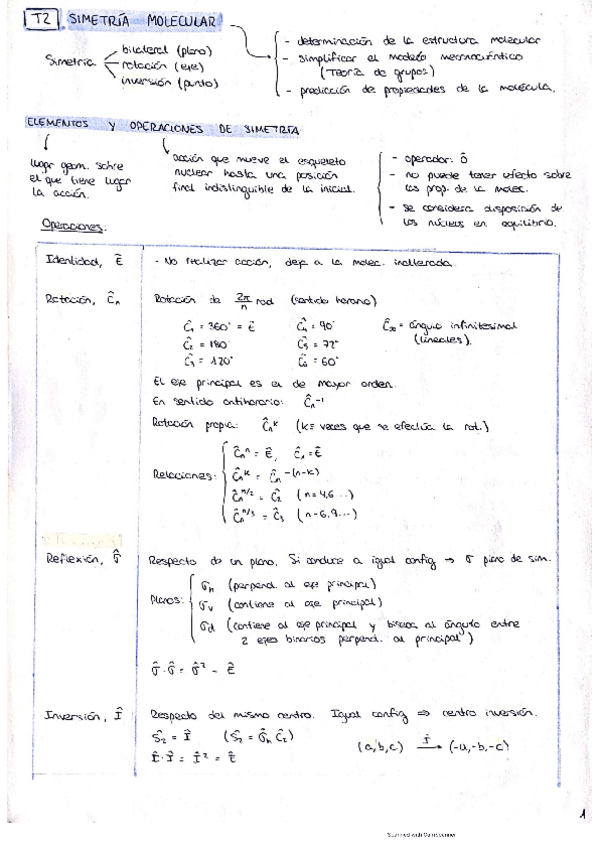 T2 SIMETRÍA MOLECULAR
Simetría
bilateral (plano)
rotación (eje)
inversión (punto)
- determinación de la estructura molecular
- simplificar el modelo mecanocuántico
(Teoría de grupos)
- predicción de propiedades de la molécula.
ELEMENTOS Y OPERACIONES DE SIMETRÍA
lugar geom. sobre
el que tiene lugar
la acción.
acción que mueve el esqueleto
nuclear hasta una posición
final indistinguible de la inicial.
- operador: Ô
- no puede tener efecto sobre
las prop. de la molec.
- se considera disposición de
los núcleos en equilibrio.
Operaciones:
Identidad, Ê
- No realizar acción, deja a la molec. inalterada.
Rotación, Ĉn
Rotación de 2π/n rad (sentido horario)
Ĉ1 = 360° = Ê Ĉ4 = 90° Ĉ∞ = ángulo infinitesimal
Ĉ2 = 180° Ĉ5 = 72° (lineales).
Ĉ3 = 120° Ĉ6 = 60°
El eje principal es el de mayor orden.
En sentido antihorario: Ĉn⁻¹
Rotación propia: Ĉn^k (k = veces que se efectúa la rot.)
Relaciones:
Ĉn^n = Ê, Ĉ1 = Ê
Ĉn^k = Ĉn^-(n-k)
Ĉn^n/2 = Ĉ2 (n=4,6...)
Ĉn^n/3 = Ĉ3 (n=6,9...)
Reflexión, σ̂
Respecto de un plano. Si conduce a igual config → σ plano de sim.
Planos:
σh (perpend. al eje principal)
σv (contiene al eje principal)
σd (contiene al eje principal y biseca al ángulo entre
2 ejes binarios perpend. al principal)
σ̂·σ̂ = σ̂² = Ê
Inversión, Î
Respecto del mismo centro. Igual config ⇒ centro inversión.
Ŝ2 = Î (Ŝ2 = σ̂h Ĉ2) (a,b,c) Î→ (-a,-b,-c)
Î·Î = Î² = Ê
1
Scanned with CamScanner